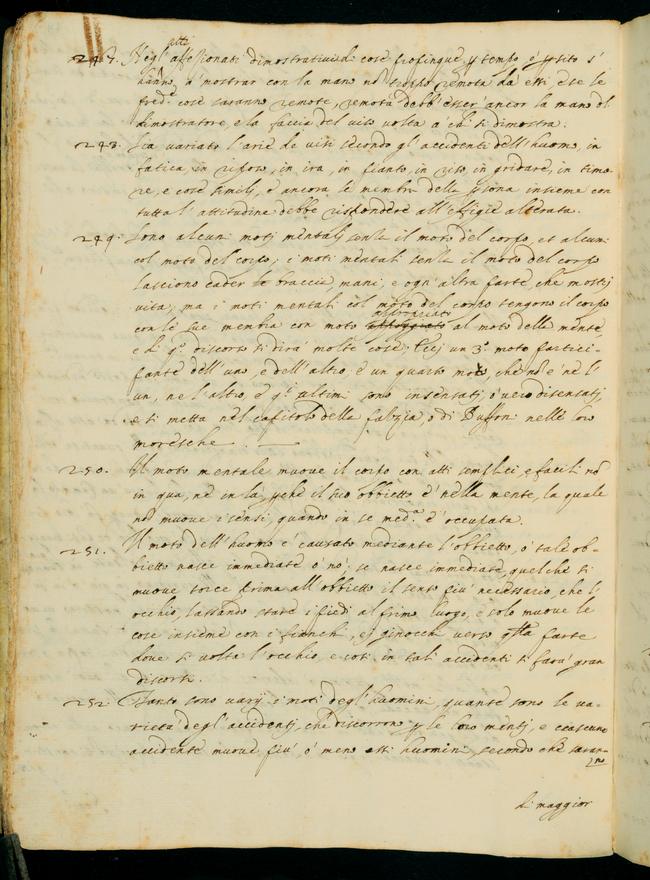 atti
247. Negl' affezionati dimostrativi di cose propinque p tempo è p sito s'
hanno, a' mostrar con la mano nō troppo remota da essi, e se le
pred.e cose saranno remote, remota debb' esser ancor la mano del
dimostratore, e la faccia del viso volta a chi si dimostra.
248. Sia variato l'arie de visi secondo gl' accidenti dell' huomo, in
fatica, in riposo, in ira, in pianto, in riso, in gridare, in timo-
re, e cose simili, è ancora le membra della psona insieme con
tutta l' attitudine debbe rispondere all' effigie alterata.
249. Sono alcuni motj mentalj senza il moto del corpo, et alcuni
col moto del corpo; i moti mentali senza il moto del corpo
lasciono cader le braccia, mani, e ogn' altra parte, che mostrj
vita; ma i moti mentali col moto del corpo tengono il corpo
appropriato
con le sue membra con moto al moto della mente
e di q.o discorso si dirà molte cose; Ecci un 3.o moto partici-
pante dell' uno, e dell' altro, è un quarto moto, che nō è ne l'
un, ne l' altro, è q.i ultimi sono insensati, ò vero disensatj,
e si metta nel capitolo della pazzia, ò di Buffoni nelle loro
moresche.
250. Il moto mentale muove il corpo con atti semplici, e facili nō
in qua, ne in la, pchè il suo obbietto è nella mente, la quale
nō muove i sensi, quando in se med.a è occupata.
251. Il moto dell' huomo è causato mediante l'obbietto, ò tale ob-
bietto nasce immediate ò no; se nasce immediate, quel che si
muove torce prima all' obbietto il senso più necessario, che l'
occhio, lassando stare i piedi al primo luogo, e solo muove le
cose insieme con i fianchi, e i ginocchi verso qlla parte
dove si volta l'occhio, e così in tali accidenti si farà gran
discorsi.
252. Tanto sono varij i moti degl' huomini, quante sono le va-
rietà degl' accidentj, che discorron p le loro mentj, e ciascuno
accidente muove più ò meno essi huomini, secondo che saran-
no
di maggior